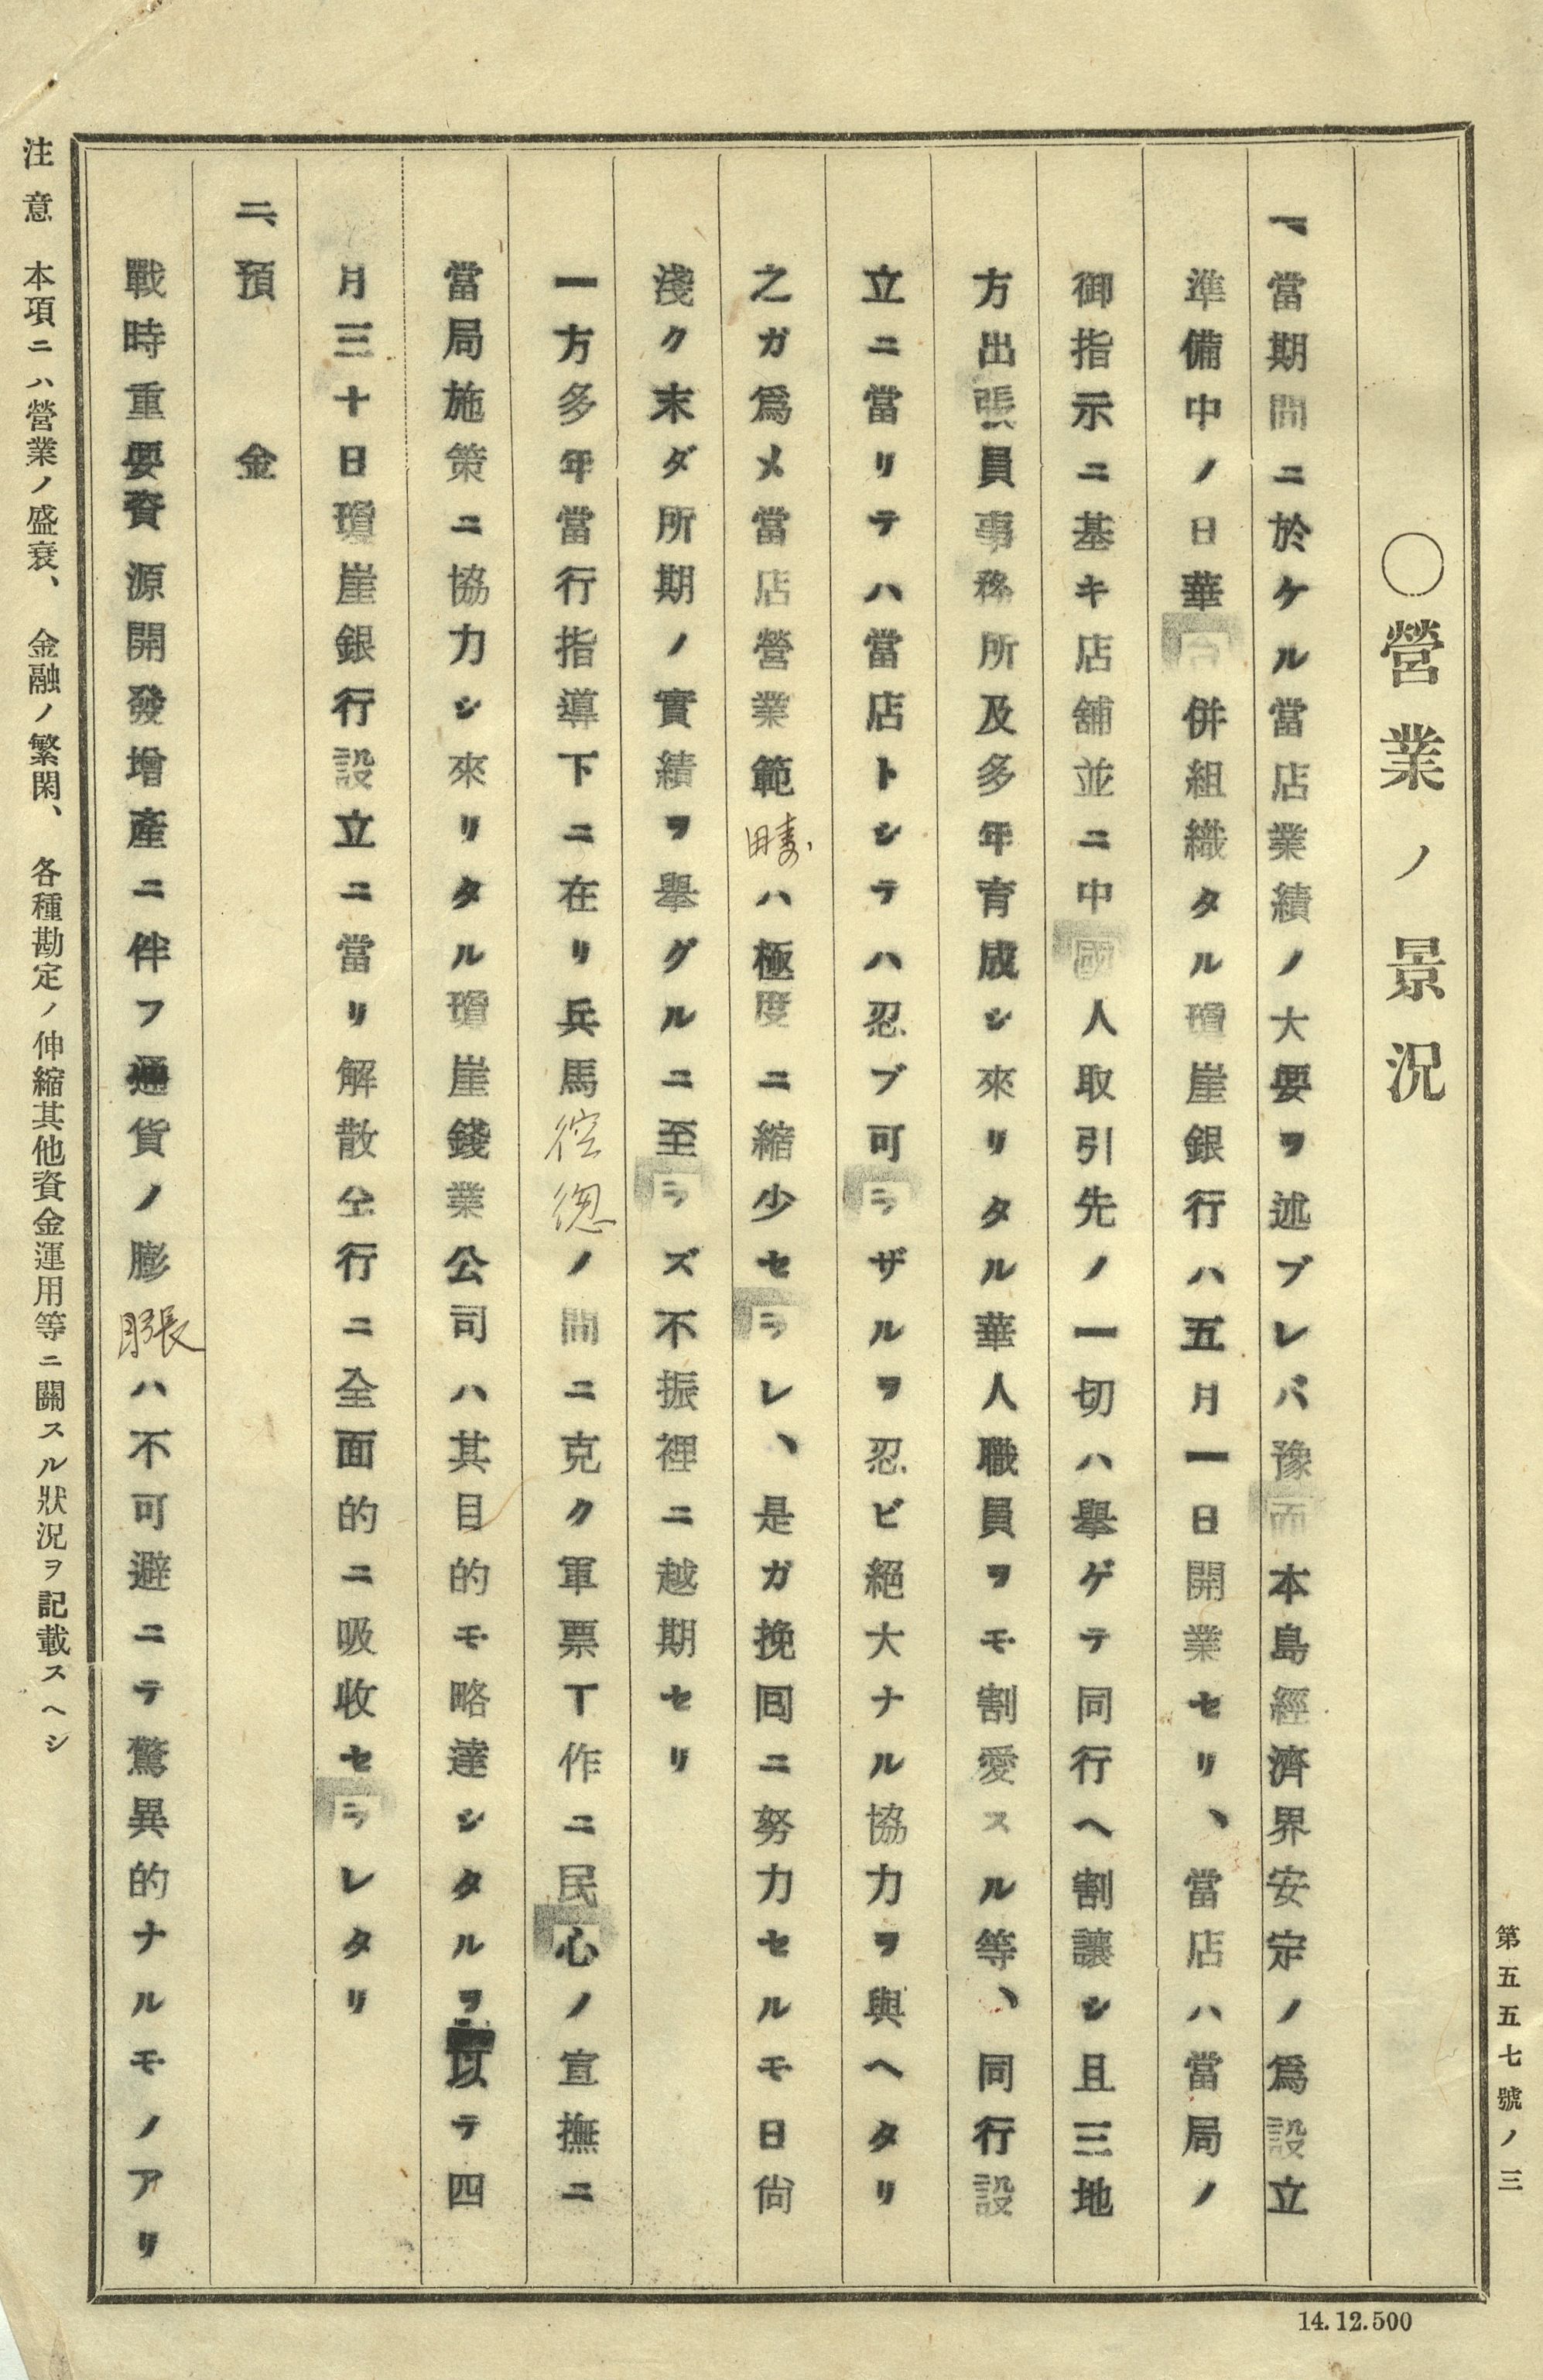 第五五七號ノ三
○營業ノ景況
一、當期間ニ於ケル當店業績ノ大要ヲ述ブレバ豫而本島經濟界安定ノ爲設立
準備中ノ日華合併組織タル瓊崖銀行ハ五月一日開業セリ、當店ハ當局ノ
御指示ニ基キ店舖並ニ中國人取引先ノ一切ハ擧ゲテ同行ヘ割讓シ且三地
方出張員事務所及多年育成シ來リタル華人職員ヲモ割愛スル等、同行設
立ニ當リテハ當店トシテハ忍ブ可ラザルヲ忍ビ絕大ナル協力ヲ與ヘタリ
之ガ爲メ當店營業範疇ハ極度ニ縮少セラレ、是ガ挽回ニ努力セルモ日尙
淺ク末ダ所期ノ實績ヲ擧グルニ至ラズ不振裡ニ越期セリ
一方多年當行指導下ニ在リ兵馬倥偬ノ間ニ克ク軍票工作ニ民心ノ宣撫ニ
當局施策ニ協力シ來リタル瓊崖錢業公司ハ其目的モ略達シタルヲ以テ四
月三十日瓊崖銀行設立ニ當リ解散仝行ニ全面的ニ吸收セラレタリ
二、預金
戰時重要資源開發增產ニ伴フ通貨ノ膨脹ハ不可避ニテ驚異的ナルモノアリ
注意 本項ニハ營業ノ盛衰、金融ノ繁閑、各種勘定ノ伸縮其他資金運用等ニ關スル狀況ヲ記載スヘシ
14.12.500